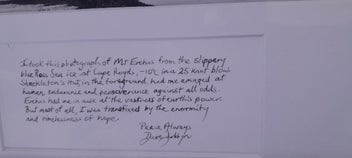 I took this photograph of Mt Erebus from the slippery
blue Ross Sea ice at Cape Royds, -40c in a 25 knot blow.
Shackleton's Hut, in the foreground, had me amazed at
human endurance and perseverance against all odds.
Erebus had me in awe at the vastness of earth's power.
But most of all, I was transfixed by the enormity
and timelessness of hope.
Peace Always